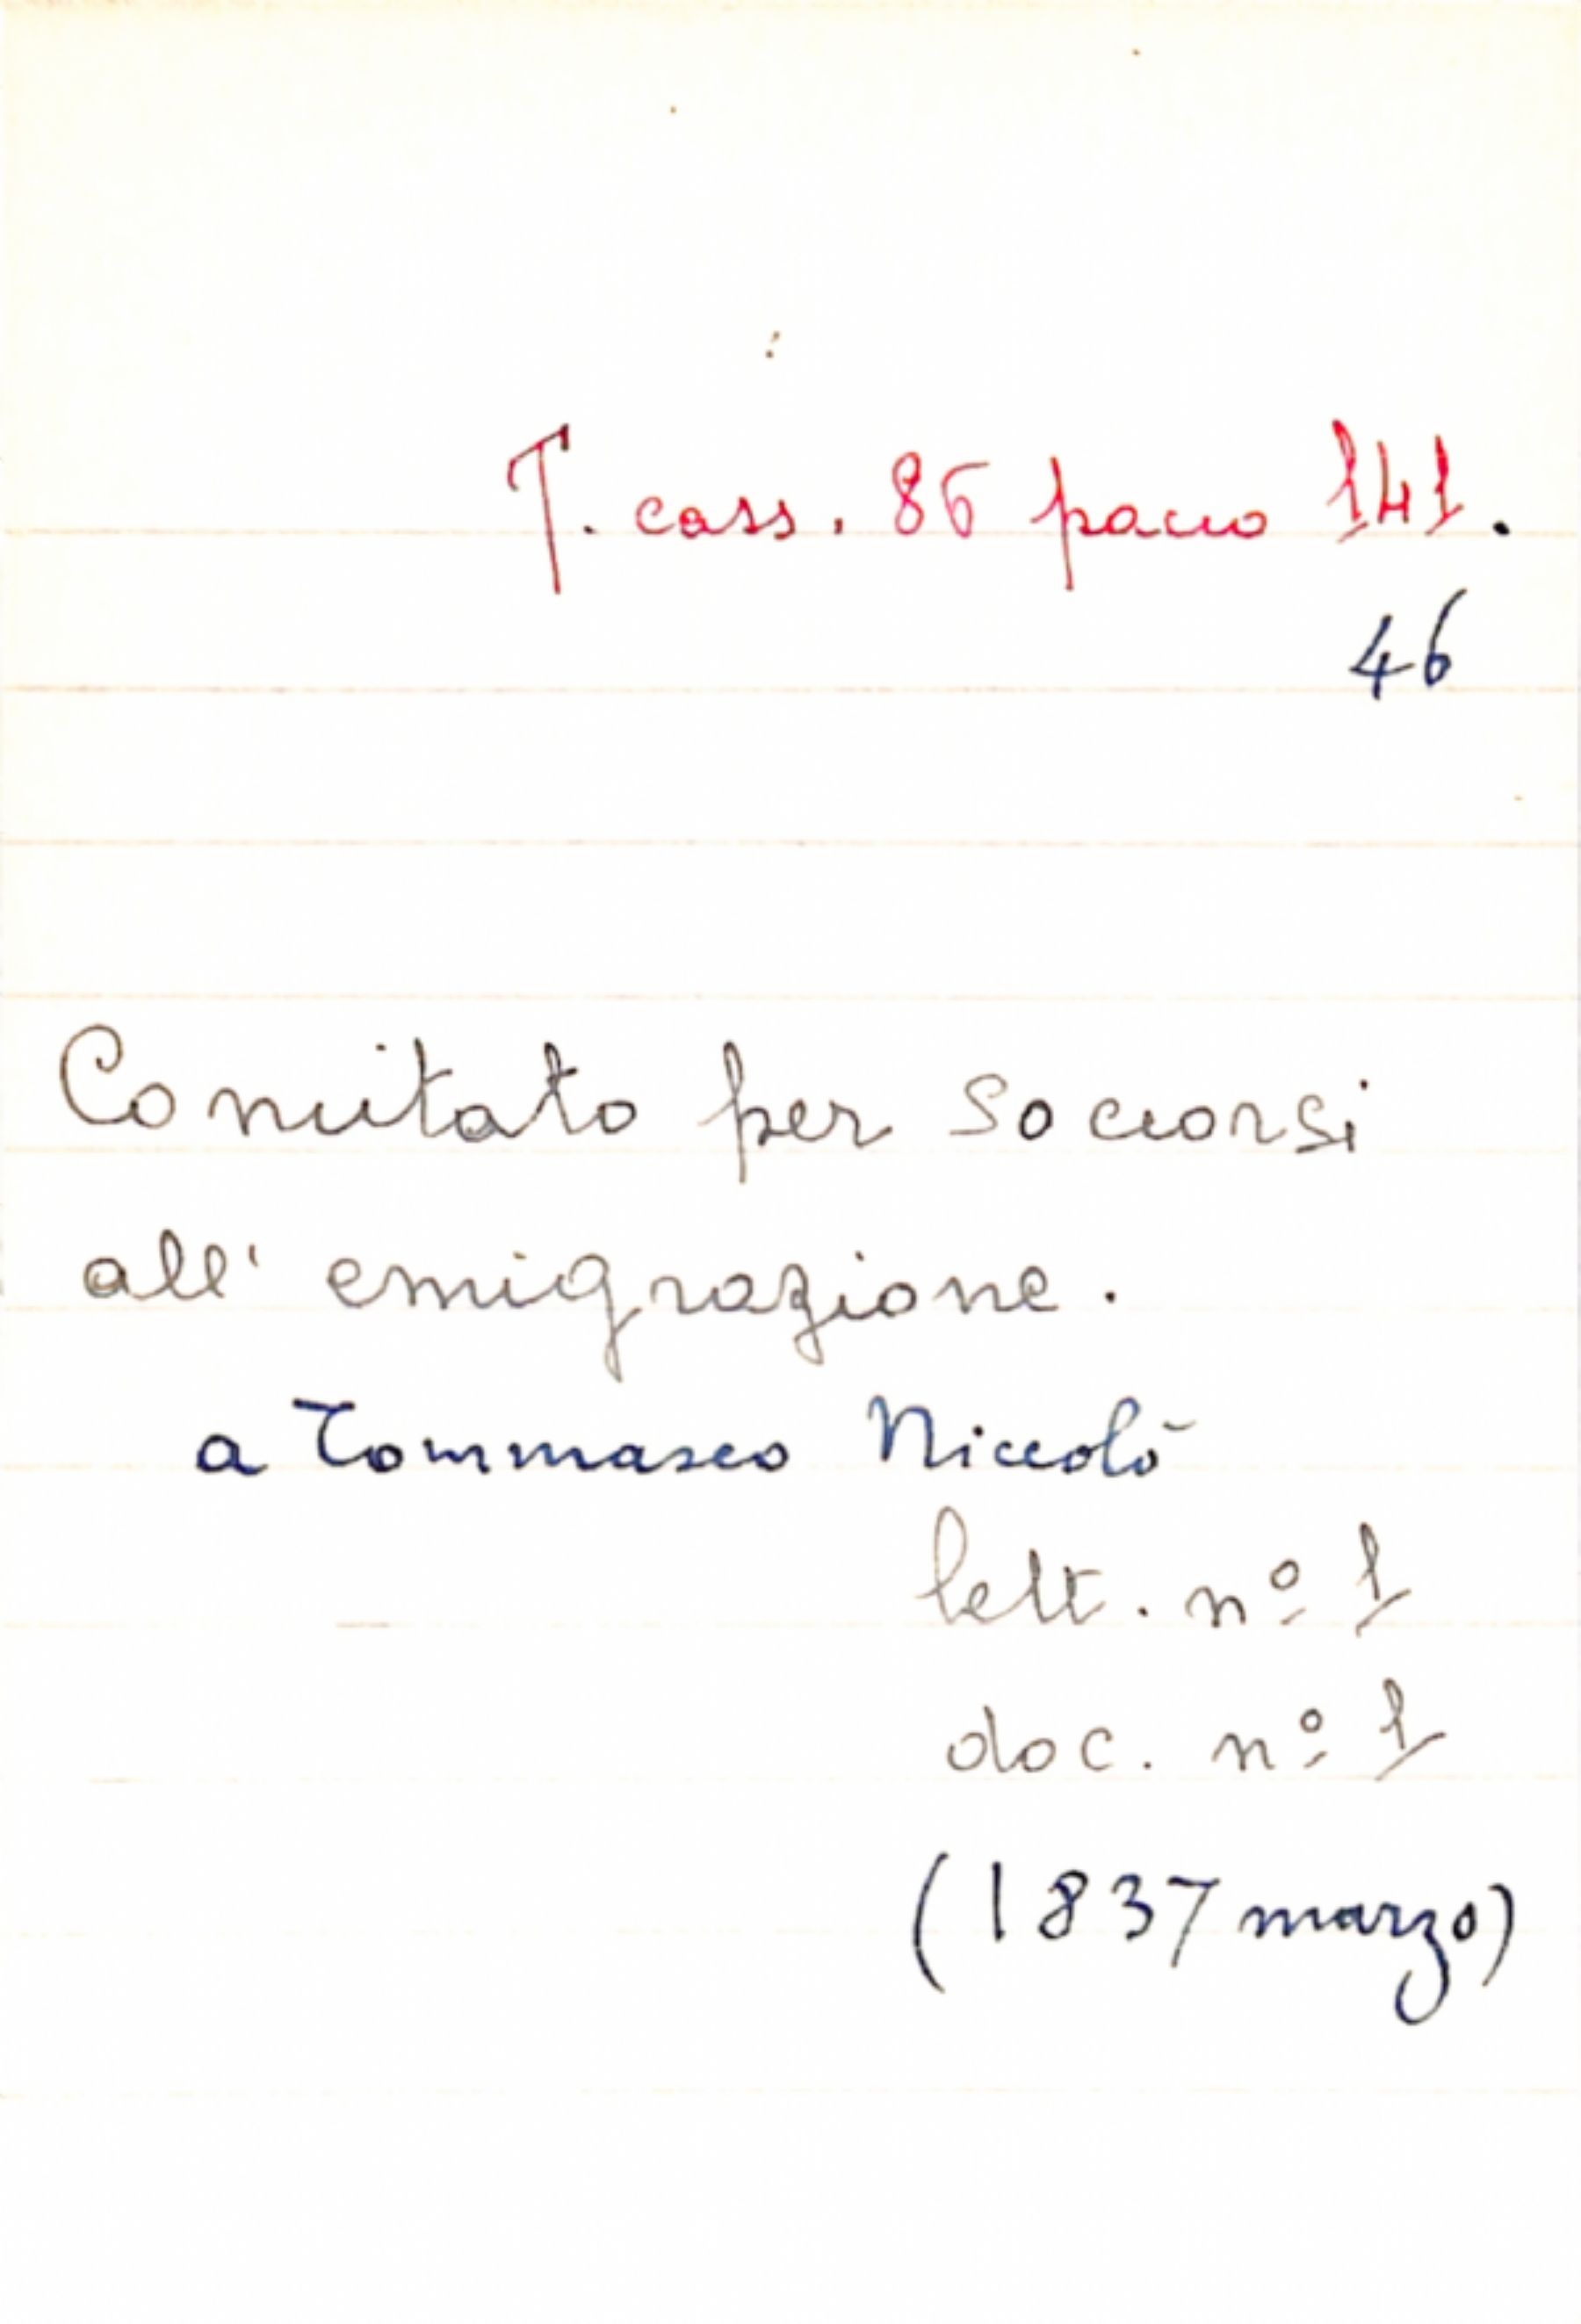 T. cass. 86 pacco 141.
46
Comitato per soccorsi
all' emigrazione.
a Tommaseo Niccolò
lett. nº 1
doc. nº 1
(1837 marzo)